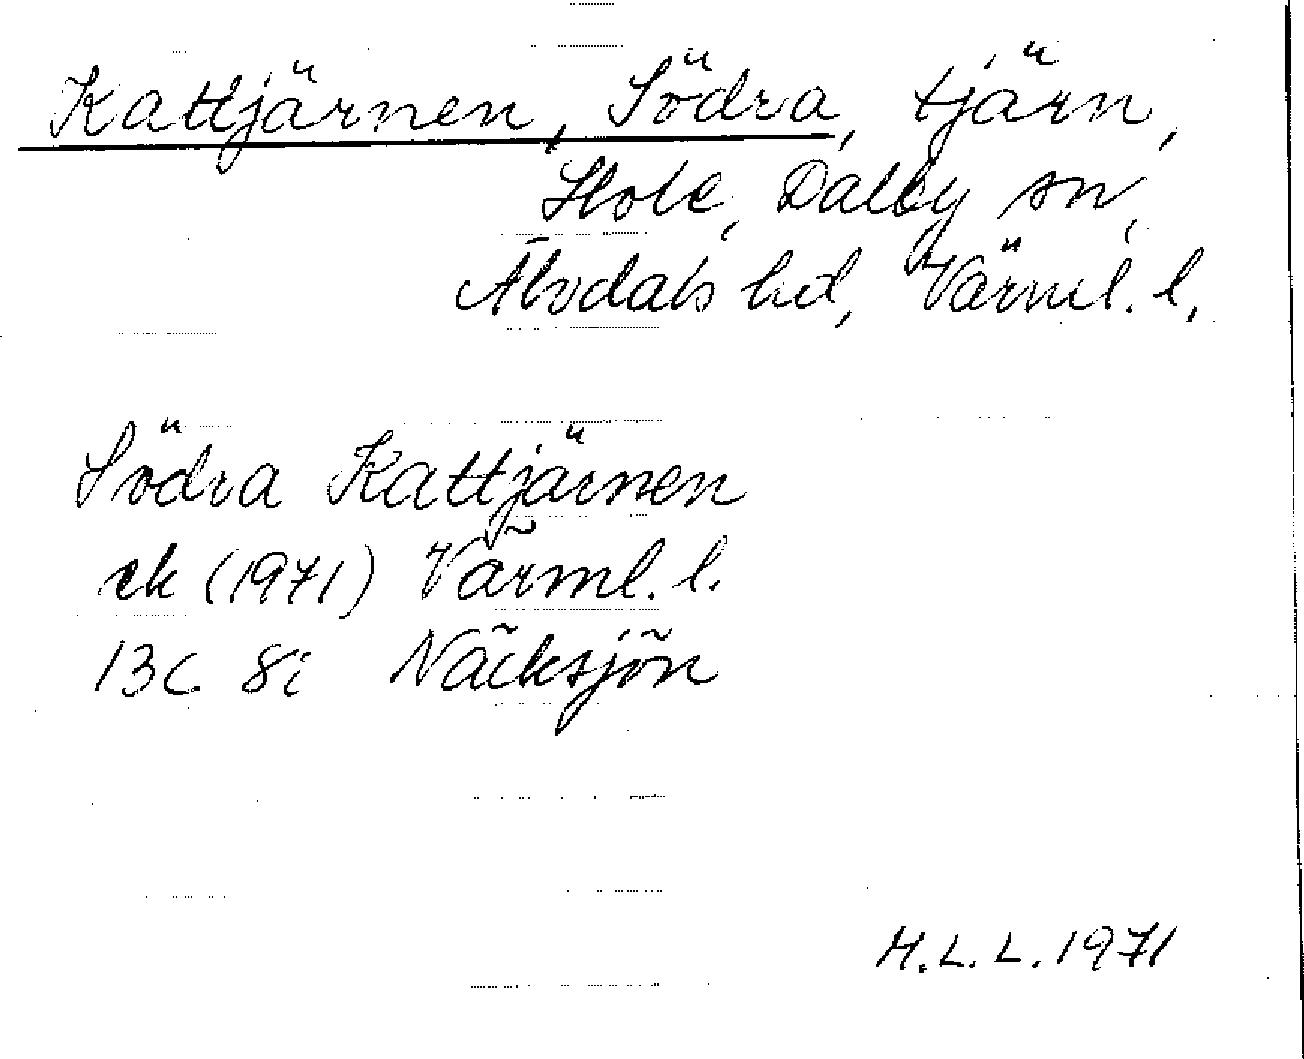 Kattjärnen, Södra, tjärn,
Hole, Dalby sn,
Älvdals hd, Värml. l.
Södra Kattjärnen
ek (1971) Värml. l.
13C 8i Näcksjön
H.L.L. 1971